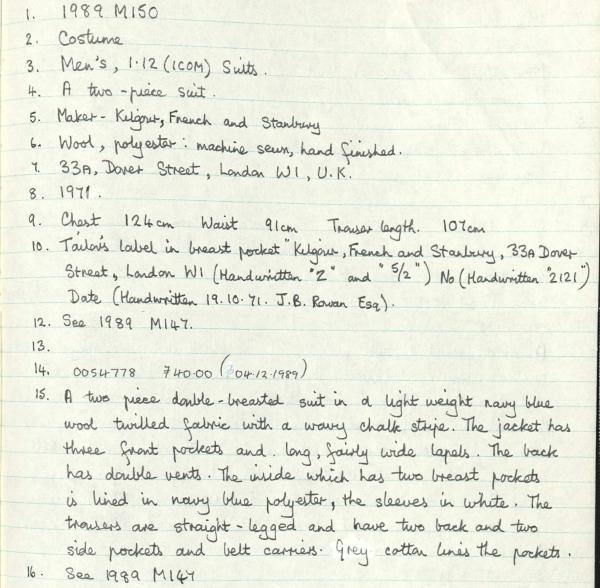 1. 1989 M150
2. Costume
3. Men's, 1.12 (ICOM) Suits.
4. A two-piece suit.
5. Maker - Kilgour, French and Stanbury
6. Wool, polyester: machine sewn, hand finished.
7. 33A, Dover Street, London W1, U.K.
8. 1971.
9. Chest 124cm Waist 91cm Trouser length. 107cm
10. Tailor's label in breast pocket "Kilgour, French and Stanbury, 33A Dover
Street, London W1 (Handwritten "2" and "5/2") No (Handwritten "2121")
Date (Handwritten 19.10.71. J.B. Rowan Esq).
12. See 1989 M147.
13.
14. 0054778 740.00 (04.12.1989)
15. A two piece double-breasted suit in a light weight navy blue
wool twilled fabric with a wavy chalk stripe. The jacket has
three front pockets and long, fairly wide lapels. The back
has double vents. The inside which has two breast pockets
is lined in navy blue polyester, the sleeves in white. The
trousers are straight-legged and have two back and two
side pockets and belt carriers. Grey cotton lines the pockets.
16. See 1989 M147